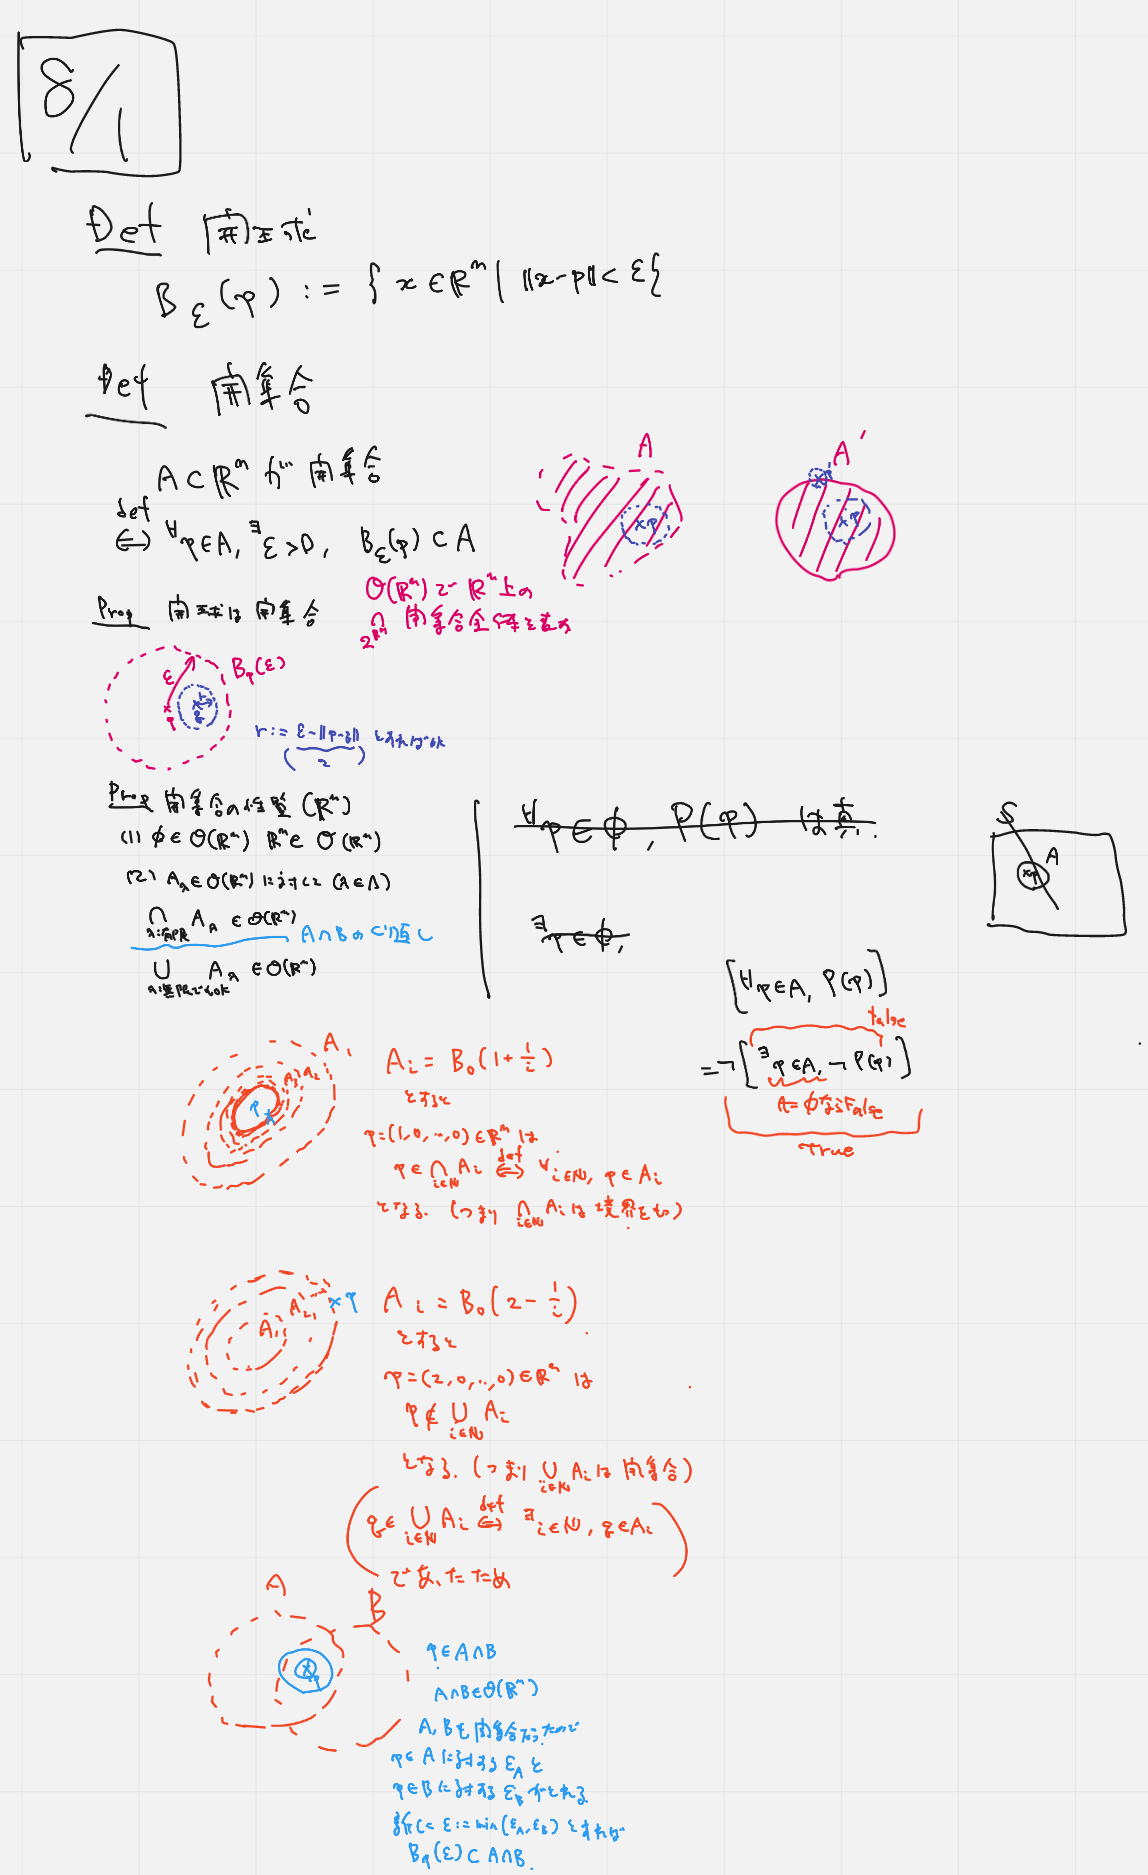 8/1
Def 開球
B_ε(p) := { x ∈ ℝⁿ | ‖x-p‖ < ε }
Def 開集合
A ⊂ ℝⁿ が 開集合
def
⇔ ∀p∈A, ∃ε>0, B_ε(p) ⊂ A
A
A'
p
p
p
O(ℝⁿ) で ℝⁿ上の
∩ 開集合全体を表す
2^ℝⁿ
Prop 開球は開集合
ε
B_p(ε)
p
r
q
r := ε-‖p-q‖ とすればok
2
Prop 開集合の性質 (ℝⁿ)
(1) φ ∈ O(ℝⁿ) ℝⁿ ∈ O(ℝⁿ)
(2) A_λ ∈ O(ℝⁿ) に対して (λ ∈ Λ)
∩ A_λ ∈ O(ℝⁿ)
λ:有限
A∩B のくり返し
∪ A_λ ∈ O(ℝⁿ)
λ:無限でもok
∀p ∈ φ, P(p) は真.
∃p ∈ φ,
S
A
p
[∀p∈A, P(p)]
false
= ¬[∃p∈A, ¬P(p)]
A=φならFalse
True
A₁
A₂
A₃
p
A_i = B_0(1+1/i)
とすると
p=(1,0,…,0)∈ℝⁿ は
p∈∩_{i∈ℕ} A_i ⇔def ∀i∈ℕ, p∈A_i
となる. (つまり ∩_{i∈ℕ} A_i は境界をもつ)
A₁
A₂
×p
A_i = B_0(2-1/i)
とすると
p=(2,0,…,0)∈ℝⁿ は
p∉∪_{i∈ℕ} A_i
となる. (つまり ∪_{i∈ℕ} A_i は開集合)
(q∈∪_{i∈ℕ} A_i ⇔def ∃i∈ℕ, q∈A_i
であったため)
A
B
p
p∈A∩B
A∩B∈O(ℝⁿ)
A, Bも開集合だったので
p∈Aに対するε_Aと
p∈Bに対するε_Bがとれる
新しく ε:=min(ε_A, ε_B) とすれば
B_p(ε) ⊂ A∩B.